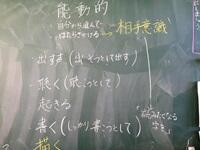 能動的
自分から進んで
はたらきかける → 相手意識
出す(出そうとして出す)
聴く(聴こうとして)
起きる
書く(しっかり書こうとして)
読みたくなる
字を
描く